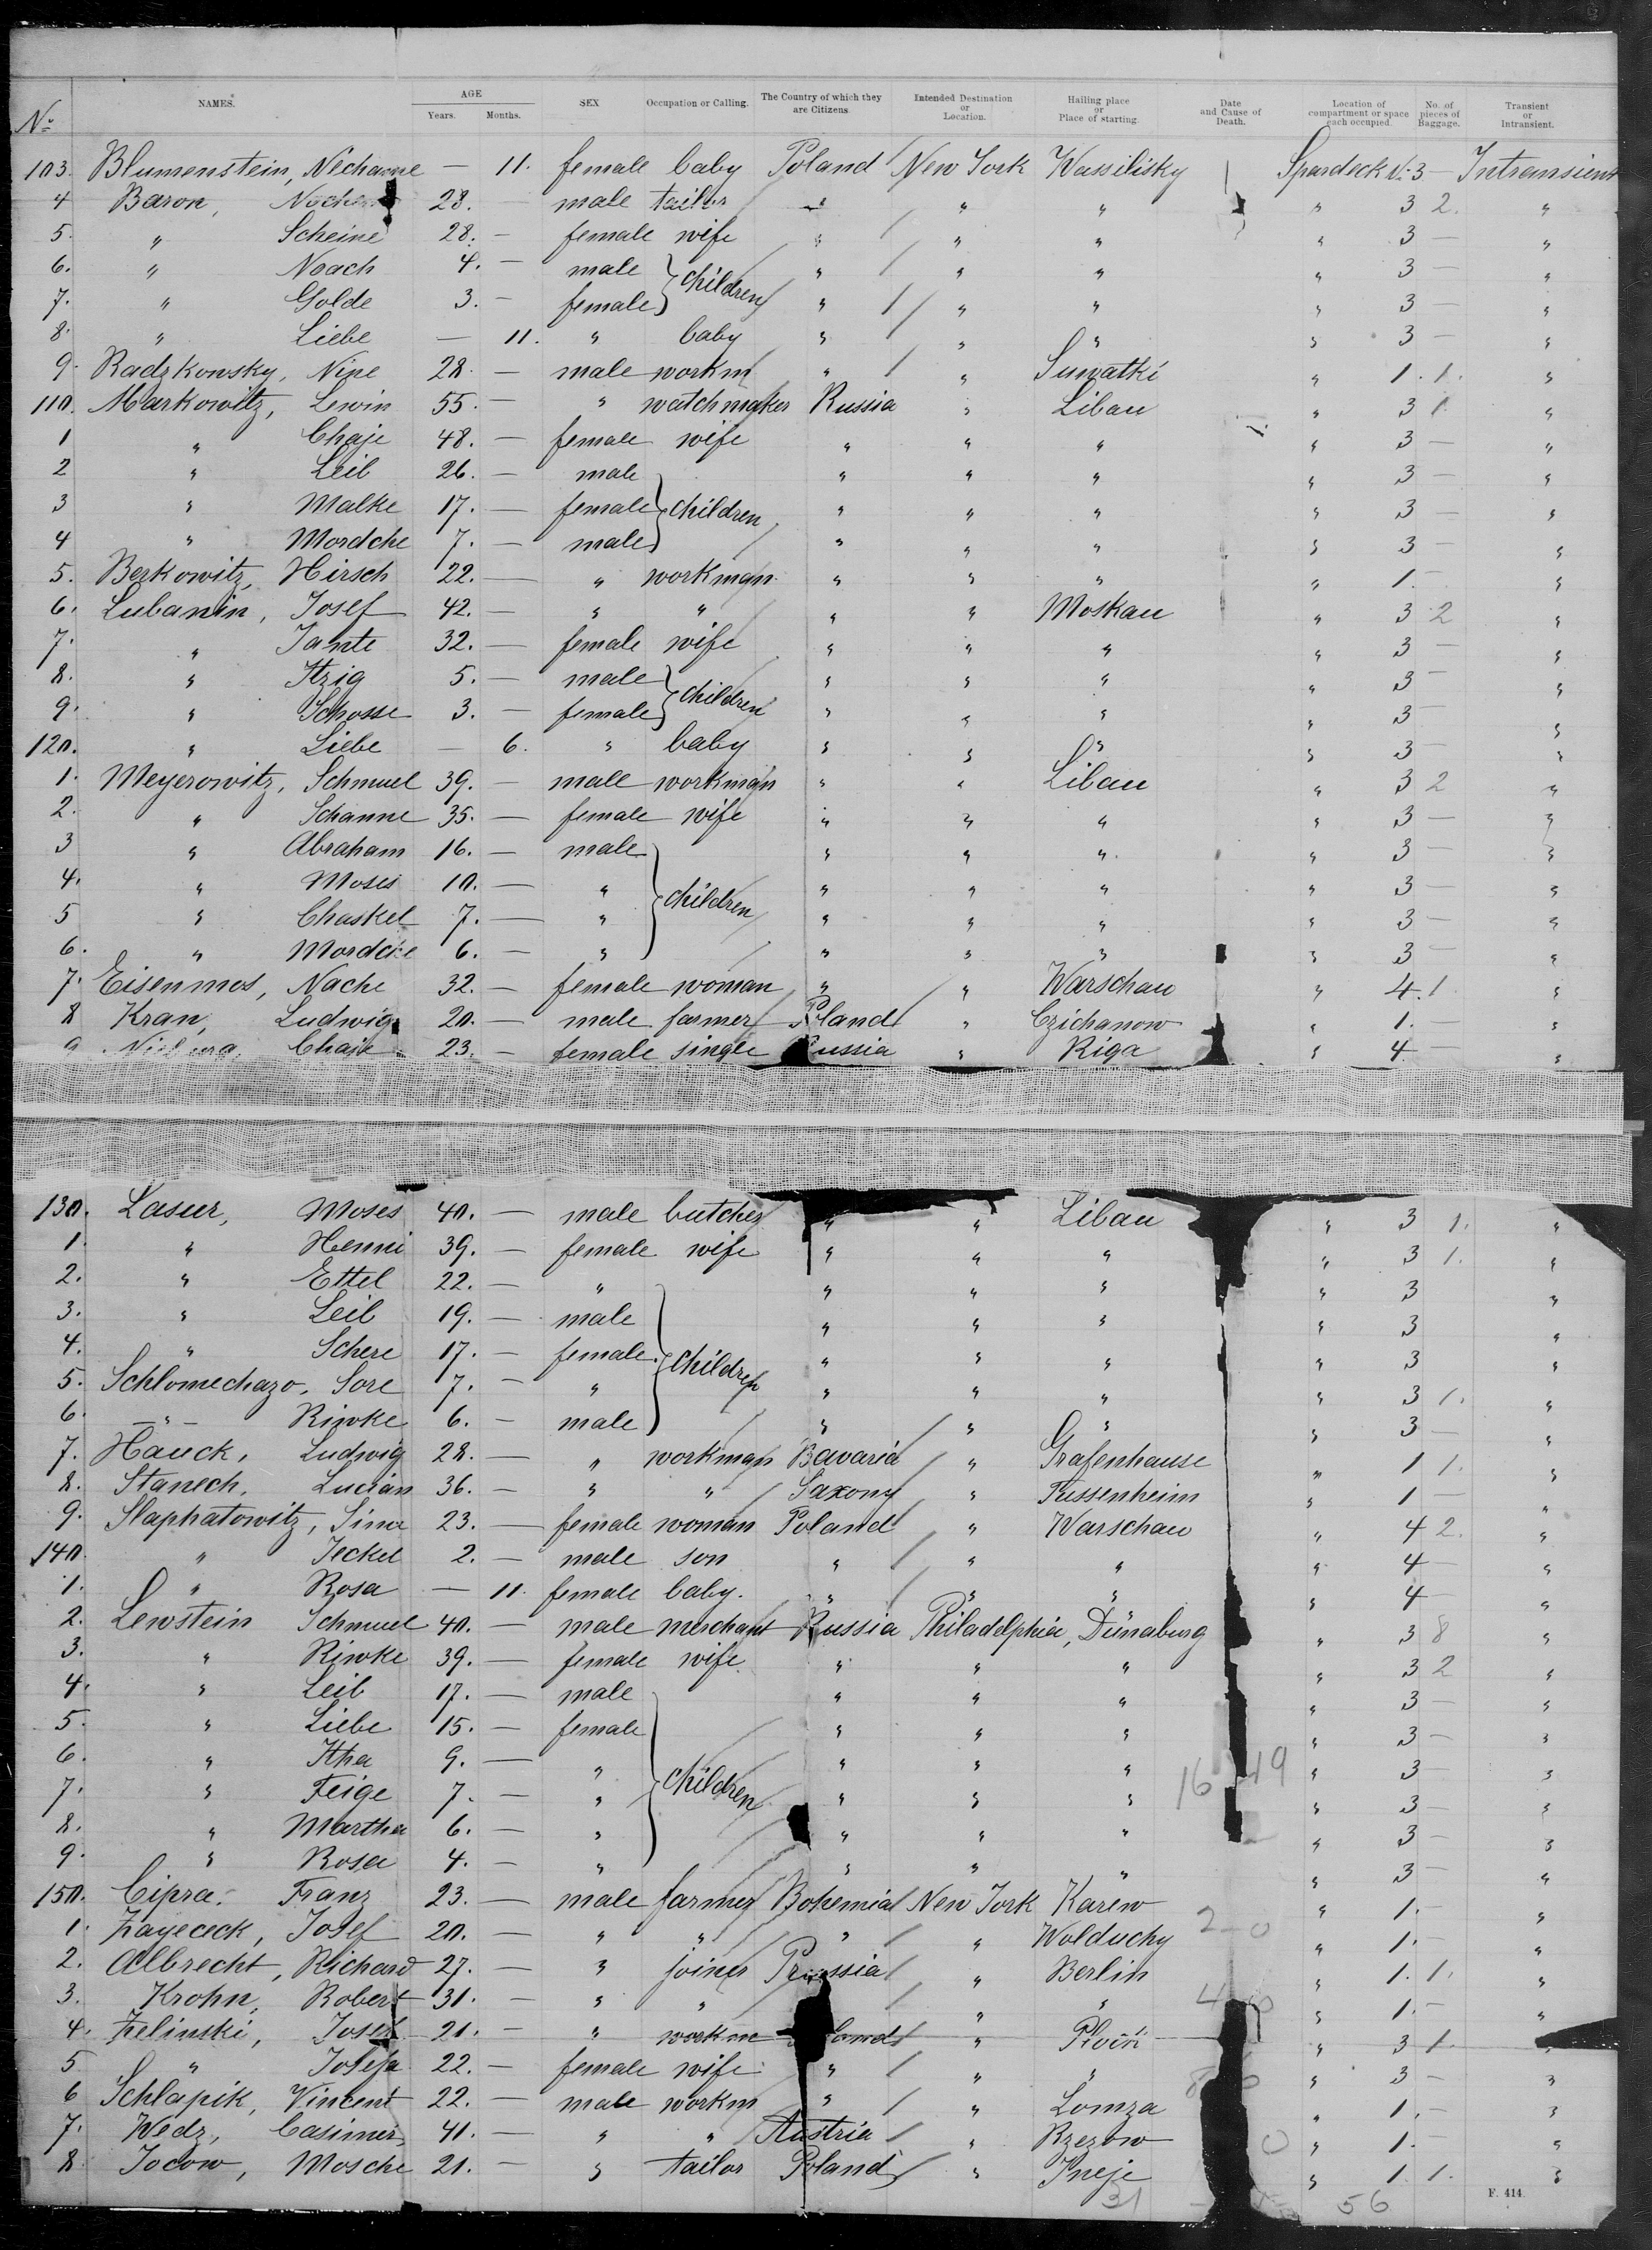 No. NAMES. AGE Years. Months. SEX Occupation or Calling. The Country of which they are Citizens. Intended Destination or Location. Hailing place or Place of starting. Date and Cause of Death. Location of compartment or space each occupied. No. of pieces of Baggage. Transient or Intransient.
103. Blumenstein, Nechame — 11. female baby Poland New York Wassilisky Spardeck No 3 — Intransient
4 Baron, 28. — male tailor " " " " 3 2. "
5. " Scheine 28. — female wife " " " " 3 — "
6. " Noach 4. — male children " " " " 3 — "
7. " Golde 3. — female " " " " 3 — "
8. " Liebe — 11. " baby " " " " 3 — "
9. Radzkowsky, Nipe 28. — male workm " " Suwatki " 1. 1. "
110. Markowitz, Lewin 55. — " watchmaker Russia " Libau " 3 1. "
1 " Chaje 48. — female wife " " " " 3 — "
2 " Leib 26. — male " " " " 3 — "
3 " Malke 17. — female children " " " " 3 — "
4 " Mordche 7. — male " " " " 3 — "
5. Berkowitz, Hirsch 22. — " workman " " " " 1. — "
6. Lubanin, Josef 42. — " " " " Moskau " 3 2 "
7. " Tante 32. — female wife " " " " 3 — "
8. " Itzig 5. — male children " " " " 3 — "
9. " Schosse 3. — female " " " " 3 — "
120. " Liebe — 6. " baby " " " " 3 — "
1. Meyerowitz, Schmuel 39. — male workman " " Libau " 3 2 "
2. " Schanne 35. — female wife " " " " 3 — "
3 " Abraham 16. — male " " " " 3 — "
4. " Moses 10. — " children " " " " 3 — "
5 " Chaskel 7. — " " " " " 3 — "
6. " Mordche 6. — " " " " " 3 — "
7. Eisenmos, Nache 32. — female woman " " Warschau " 4. 1. "
8 Kran, Ludwig 20. — male farmer Poland " Czichanow " 1. — "
9 Chaje 23. — female single Russia " Riga " 4 — "
130. Lasur, Moses 40. — male butcher " " Libau " 3 1. "
1. " Henni 39. — female wife " " " " 3 1. "
2. " Ettel 22. — " " " " " 3 "
3. " Leib 19. — male " " " " 3 "
4. " Schere 17. — female children " " " " 3 "
5. Schlomechazo, Sore 7. — " " " " " 3 1. "
6. —"— Riwke 6. — male " " " " 3 — "
7. Hauck, Ludwig 28. — " workman Bavaria " Grafenhause " 1 1. "
8. Stanech, Lucian 36. — " " Saxony " Fussenheim " 1 — "
9. Slaphatowitz, Sima 23. — female woman Poland " Warschau " 4 2. "
140. " Jeckel 2. — male son " " " " 4 — "
1. " Rosa — 11. female baby. " " " " 4 — "
2. Lewstein Schmuel 40. — male merchant Russia Philadelphia, Dünaburg " 3 8 "
3. " Riwke 39. — female wife " " " " 3 2 "
4. " Leib 17. — male " " " " 3 — "
5. " Liebe 15. — female " " " " 3 — "
6. " Itha 9. — " " " " 16 49 " 3 — "
7. " Feige 7. — " children " " " " 3 — "
8. " Martha 6. — " " " " " 3 — "
9. " Rosa 4. — " " " " " 3 — "
150. Cipra. Franz 23. — male farmer Bohemia New York Karew " 1. — "
1. Zayececk, Josef 20. — " " " " Wolduchy 2 0 " 1. — "
2. Albrecht, Richard 27. — " joiner Prussia " Berlin " 1. 1. "
3. Krohn, Robert 31. — " " " " " 1. — "
4. Zelinski, Josef 21. — " workm Poland " " 3 1. "
5 " Josefa 22. — female wife " " " " 3 — "
6 Schlapik, Vincent 22. — male workm " " Lomza " 1. — "
7. Wedz, Casimir 41. — " " Austria " Rzezow 0 " 1. — "
8 Jocow, Mosche 21. — " tailor Poland " Pneje " 1. 1. "
31 56
F. 414.